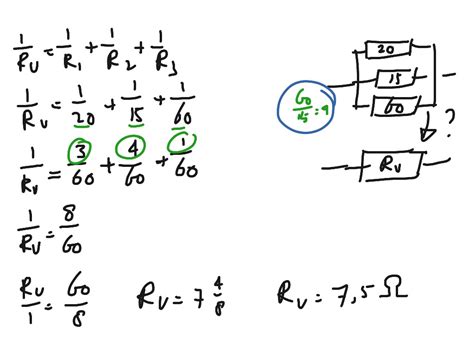 1/Rv = 1/R1 + 1/R2 + 1/R3
1/Rv = 1/20 + 1/15 + 1/60
1/Rv = 3/60 + 4/60 + 1/60
1/Rv = 8/60
Rv/1 = 60/8
Rv = 7 4/8
Rv = 7,5 Ω
20
15
60
60/15 = 4
?
Rv